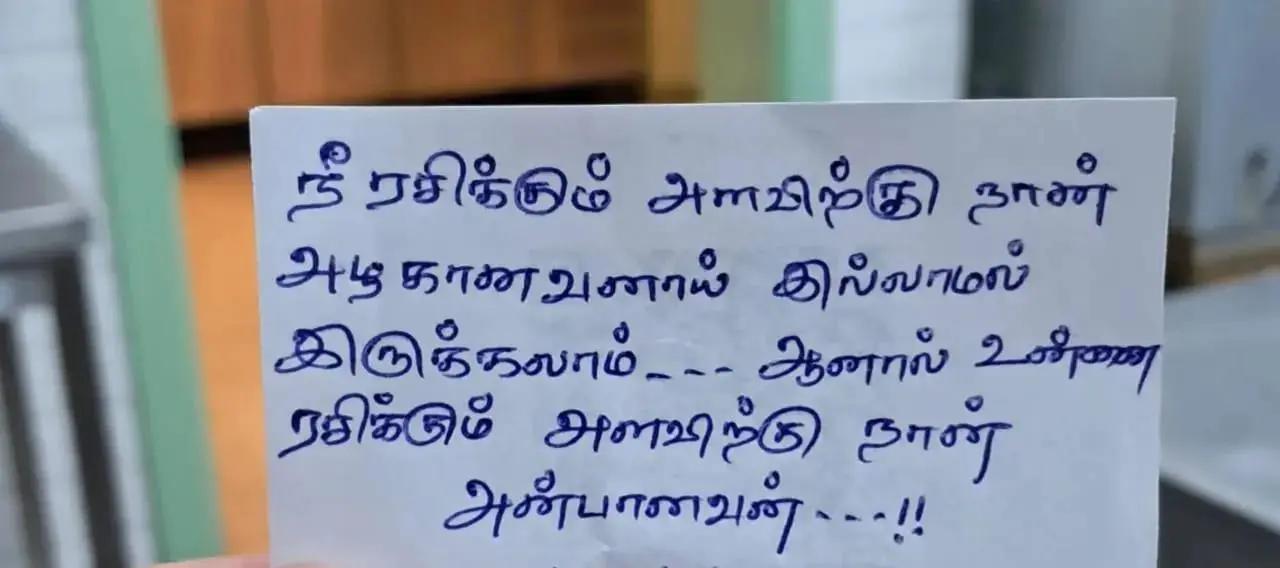 நீ ரசிக்கும் அளவிற்கு நான்
அழகானவனாய் இல்லாமல்
இருக்கலாம்--- ஆனால் உன்னை
ரசிக்கும் அளவிற்கு நான்
அன்பானவன்---!!